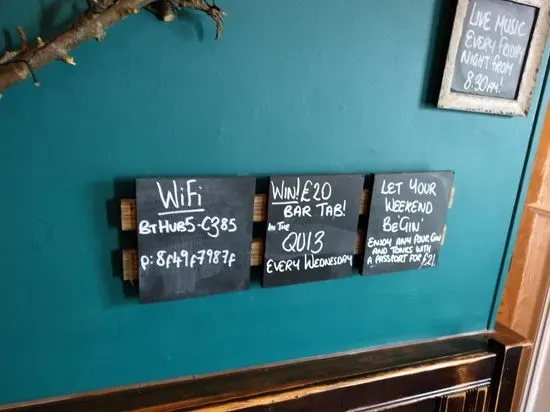 LIVE MUSIC
EVERY FRIDAY
NIGHT FROM
8.30PM!
WiFi
BTHUB5-C385
P: 8f49f7987f
WIN! £20
BAR TAB!
IN THE
QUIZ
EVERY WEDNESDAY
LET YOUR
WEEKEND
BEGIN
ENJOY ANY FOUR GIN
AND TONICS WITH
A PASSPORT FOR £21